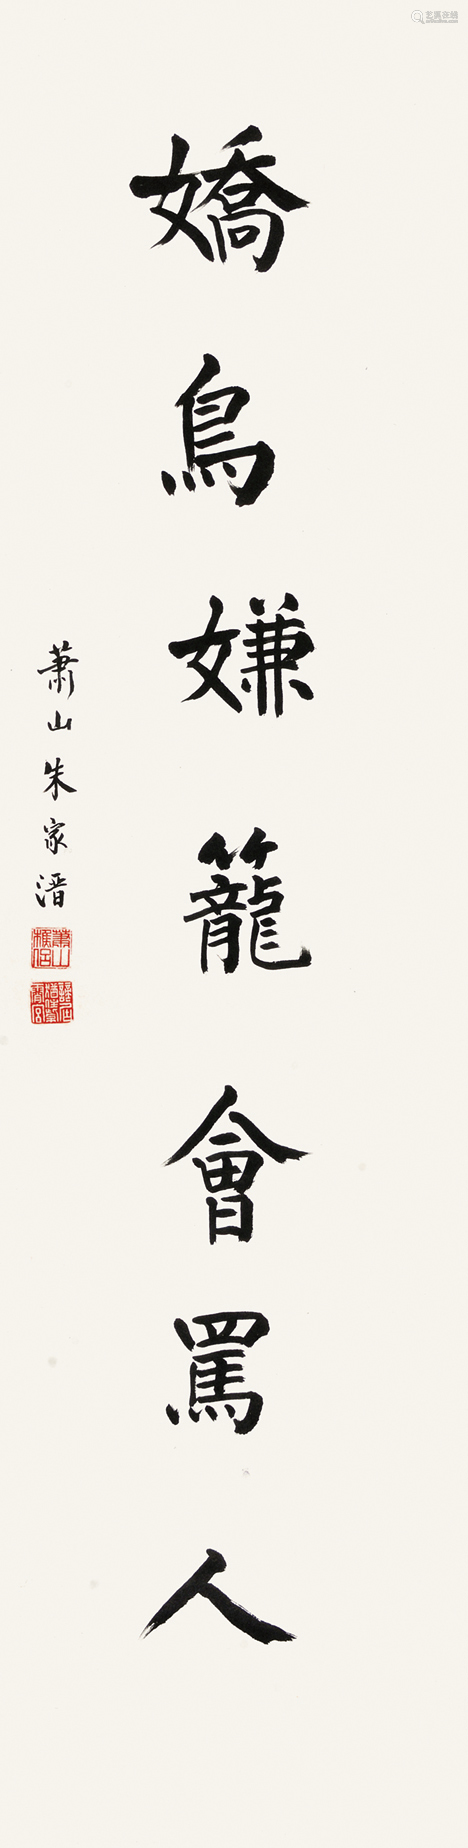 嬌鳥嫌籠會罵人
蕭山朱家溍